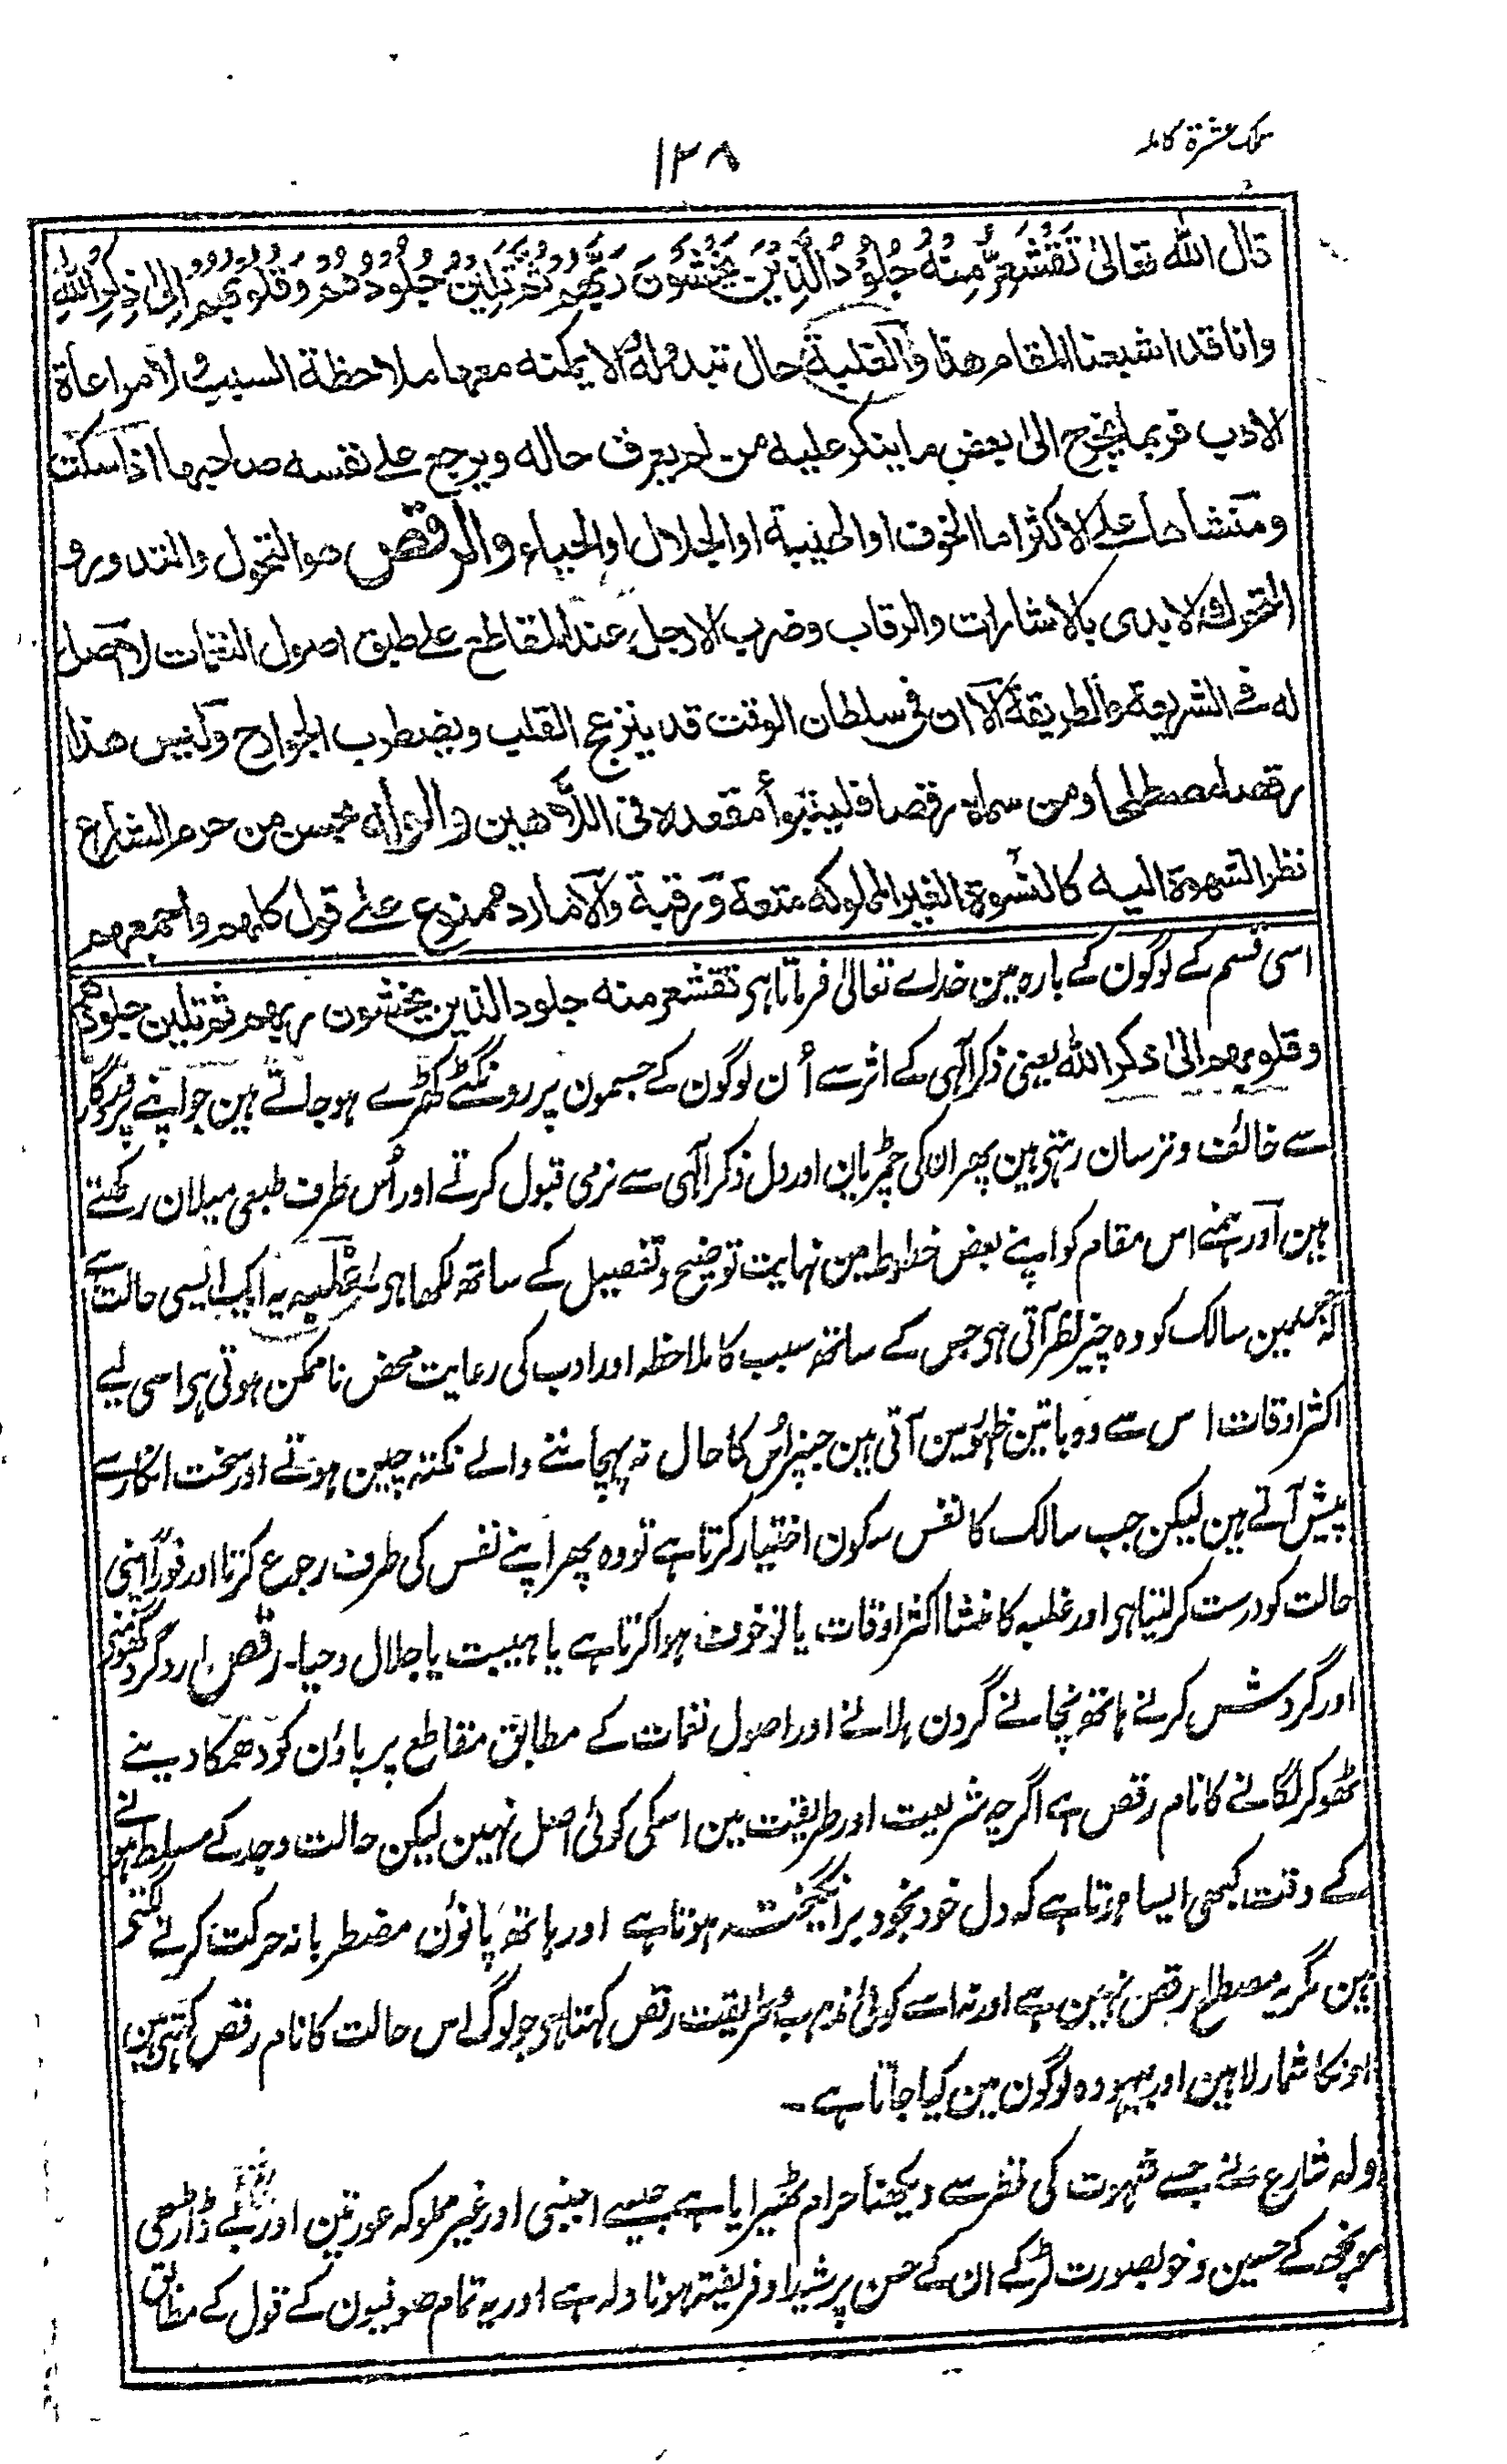 تلک عشرة کاملہ
۱۲۸
قال الله تعالیٰ تَقْشَعِرُّ مِنْهُ جُلُوْدُ الَّذِيْنَ يَخْشَوْنَ رَبَّهُمْ ثُمَّ تَلِيْنُ جُلُوْدُهُمْ وَقُلُوْبُهُمْ اِلیٰ ذِكْرِ اللهِ
وانا قد اشبعنا المقام هذا والغلبة حال تبدو له لا يمكنه معها ملاحظة السبب ولا مراعاة
الادب فربما يخرج الی بعض ما ينكر عليه من لم يعرف حاله ويرجع علی نفسه صاحبها اذا سكنت
ومنشاها علی الاكثر اما الخوف او الهيبة او الجلال او الحياء والرقص هو التحول والتدور و
التحرك لا يدی بالاشارات والرقاب وضرب الارجل عند المقاطع علی طبق اصول النغمات لا اصل
له فی الشريعة والطريقة الا ان فی سلطان الوقت قد ينزعج القلب ويضطرب الجوارح وليس هذا
رقصا مصطلحا ومن سماه رقصا فليتبوأ مقعده فی اللاهين والوله خمس من حرم الشارع
نظر الشهوة اليه كالنسوة الغير المملوكه متعة ورقبة والامارد ممنوع علی قول كلهم واجمعهم
اسی قسم کے لوگون کے بارہ مین خداے تعالیٰ فرماتا ہی تقشعر منه جلود الذین یخشون ربهم ثم تلین جلودهم
وقلوبهم الیٰ ذکر الله یعنی ذکر الٰہی کے اثر سے اُن لوگون کے جسمون پر رونگٹے کھڑے ہو جاتے ہین جو اپنے پروردگار
سے خائف و ترسان رہتی ہین پھر ان کی چمڑیان اور دل ذکر الٰہی سے نرمی قبول کرتے اور اُس طرف طبعی میلان رکھتے
ہین اور ہمنے اس مقام کو اپنے بعض خطوط مین نہایت توضیح و تفصیل کے ساتھ لکھا ہی غلبہ یہ ایک ایسی حالت ہے
کہ جسمین سالک کو وہ چیز نظر آتی ہی جس کے ساتھ سبب کا ملاحظہ اور ادب کی رعایت محض ناممکن ہوتی ہی اسی لیے
اکثر اوقات اس سے وہ باتین ظہور مین آتی ہین جنپر اُس کا حال نہ پہچاننے والے نکتہ چین ہوتے اور سخت انکار سے
پیش آتے ہین لیکن جب سالک کا نفس سکون اختیار کرتا ہے تو وہ پھر اپنے نفس کی طرف رجوع کرتا اور فوراً اپنی
حالت کو درست کر لیتا ہی اور غلبہ کا منشا اکثر اوقات یا تو خوف ہوا کرتا ہے یا ہیبت یا جلال و حیا۔ رقص ارد گرد گھومنے
اور گردش کرنے ہاتھ نچانے گردن ہلانے اور اصول نغمات کے مطابق مقاطع پر پاؤن کو دھمکا دینے
ٹھوکر لگانے کا نام رقص ہے اگرچہ شریعت اور طریقت مین اسکی کوئی اصل نہین لیکن حالت وجد کے مسلط ہونے
کے وقت کبھی ایسا ہوتا ہے کہ دل خود بخود برانگیختہ ہوتا ہے اور ہاتھ پانوُن مضطربانہ حرکت کرنے لگتے
ہین مگر یہ مصطلح رقص نہین ہے اور نہ اسے کوئی مذہب و طریقت رقص کہتا ہی جو لوگ اس حالت کا نام رقص کہتی ہین
اونکا شمار لاہین اور بیہودہ لوگون مین کیا جاتا ہے۔
ولہ شارع نے جسے شہوت کی نظر سے دیکھنا حرام ٹھیرایا ہے جیسے اجنبی اور غیر مملوکہ عورتین اور بے ڈاڑھی
مونچھ کے حسین و خوبصورت لڑکے ان کے حسن پر شیدا و فریفتہ ہونا ولہ ہے اور یہ تمام صوفیون کے قول کے مطابق